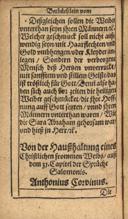 Bericht/lein vom
Desgleichen sollen die Weiber
unterthan seyn ihren Männern/
Welcher geschmuck soll nicht auß-
wendig seyn mit Haarflechten und
Gold umbhengen oder Kleyder an-
legen/ Sondern der verborgen
Mensch deß Herzen unverruckt
mit sanfftem und stillem Geist das
ist köstlich für Gott/ Denn also ha-
ben sich auch vor zeiten die heiligen
Weiber geschmücket/ die ihre Hoff-
nung auff Gott setzten/ und ihren
Männern unterthan waren/ Wie
die Sara Abraham gehorsam war
und hieß in Herr/ rc.
Von der Haußhaltung eines
Christlichen frommen Weibs/ auß
dem 31. Capitel der Sprüche
Salomonis.
Anthonius Corvinus.
Die